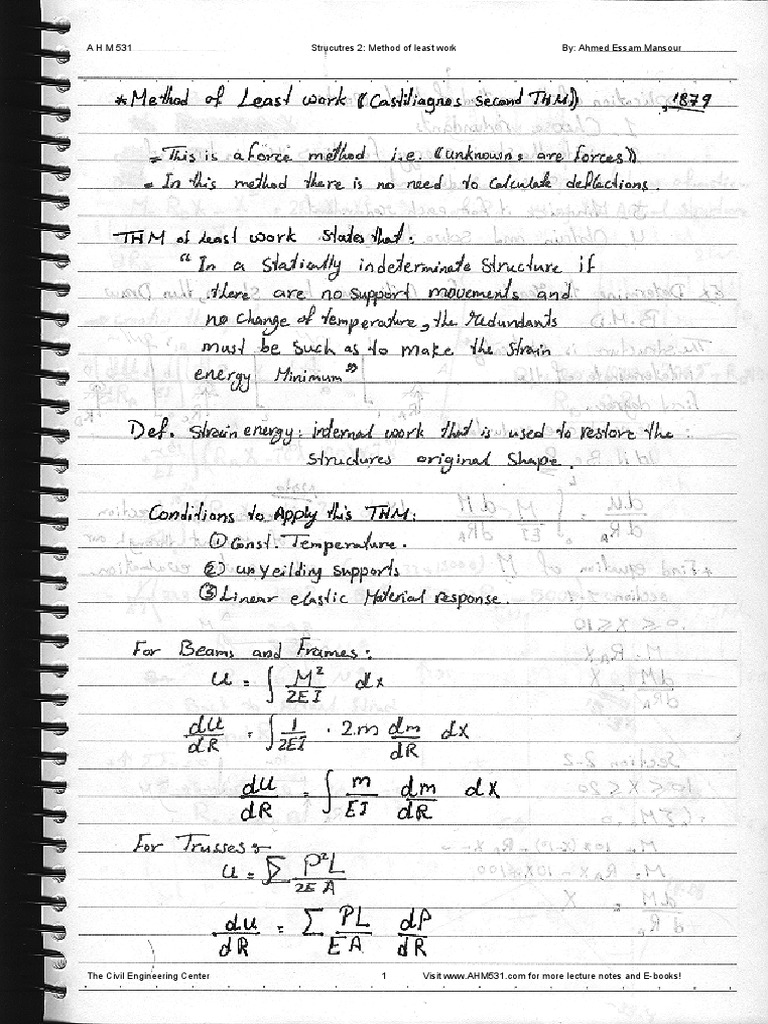 A H M 531 Strucutres 2: Method of least work By: Ahmed Essam Mansour
* Method of Least work ((Castiliagnos second THM)) , 1879
= This is a force method i.e. ((unknowns are forces))
= In this method there is no need to calculate deflections.
THM of Least work states that:
"In a statically indeterminate structure if
there are no support movements and
no change of temperature, the redundants
must be such as to make the strain
energy Minimum"
Def. Strain energy: internal work that is used to restore the
structures original shape.
Conditions to Apply this THM:
① Const. Temperature.
② unyeilding supports
③ Linear elastic Material response.
For Beams and Frames:
U = ∫ M²/2EI dx
dU/dR = ∫ 1/2EI · 2m dm/dR dx
dU/dR = ∫ m/EI dm/dR dx
For Trusses:-
U = Σ P²L/2EA
du/dR = Σ PL/EA dP/dR
The Civil Engineering Center 1 Visit www.AHM531.com for more lecture notes and E-books!